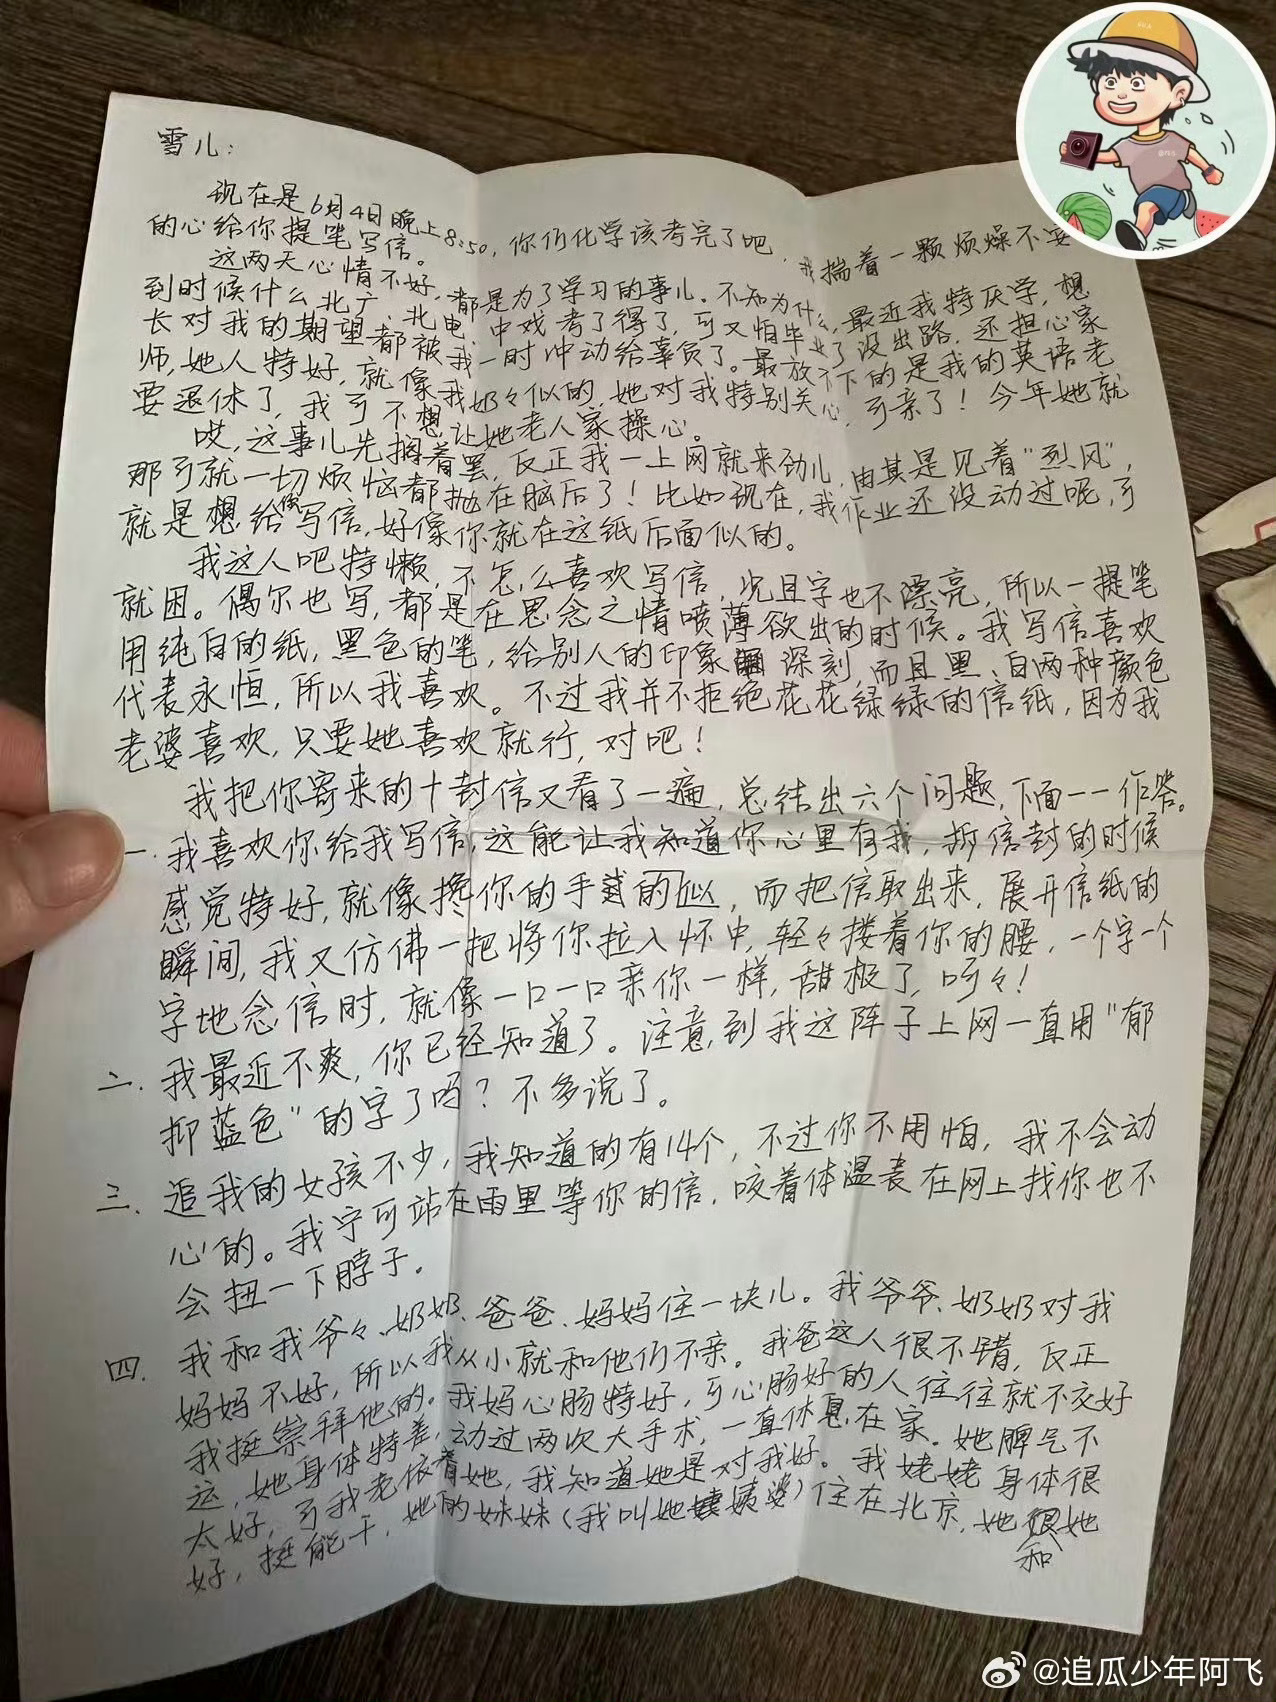 雪儿：
现在是6月4日晚上8:50，你们化学该考完了吧，我揣着一颗烦燥不安
的心给你提笔写信。
这两天心情不好，都是为了学习的事儿。不知为什么，最近我特厌学，想
到时候什么北广、北电、中戏考了得了，可又怕毕业了没出路，还担心家
长对我的期望都被我一时冲动给辜负了。最放不下的是我的英语老
师，她人特好，就像我奶々似的，她对我特别关心，可亲了！今年她就
要退休了，我可不想让她老人家操心。
哎，这事儿先搁着罢，反正我一上网就来劲儿，由其是见着“烈风”，
那可就一切烦恼都抛在脑后了！比如现在，我作业还没动过呢，可
就是想给你写信，好像你就在这纸后面似的。
我这人吧特懒，不怎么喜欢写信，况且字也不漂亮，所以一提笔
就困。偶尔也写，都是在思念之情喷薄欲出的时候。我写信喜欢
用纯白的纸，黑色的笔，给别人的印象深刻，而且黑、白两种颜色
代表永恒，所以我喜欢。不过我并不拒绝花花绿绿的信纸，因为我
老婆喜欢，只要她喜欢就行，对吧！
我把你寄来的十封信又看了一遍，总结出六个问题，下面一一作答。
一.我喜欢你给我写信，这能让我知道你心里有我，拆信封的时候
感觉特好，就像搀你的手的似，而把信取出来，展开信纸的
瞬间，我又仿佛一把将你拉入怀中，轻々搂着你的腰，一个字一个
字地念信时，就像一口一口亲你一样，甜极了，呵々！
二.我最近不爽，你已经知道了。注意到我这阵子上网一直用“郁
抑蓝色”的字了吗？不多说了。
三.追我的女孩不少，我知道的有14个，不过你不用怕，我不会动
心的。我宁可站在雨里等你的信，咬着体温表在网上找你也不
会扭一下脖子。
四.我和我爷々、奶奶、爸爸、妈妈住一块儿。我爷爷、奶奶对我
妈妈不好，所以我从小就和他们不亲。我爸这人很不错，反正
我挺崇拜他的。我妈心肠特好，可心肠好的人往往就不交好
运，她身体特差，动过两次大手术，一直休息在家。她脾气不
太好，可我老依着她，我知道她是对我好。我姥姥身体很
好，挺能干，她的妹妹（我叫她姨婆）住在北京，她和她
@追瓜少年阿飞